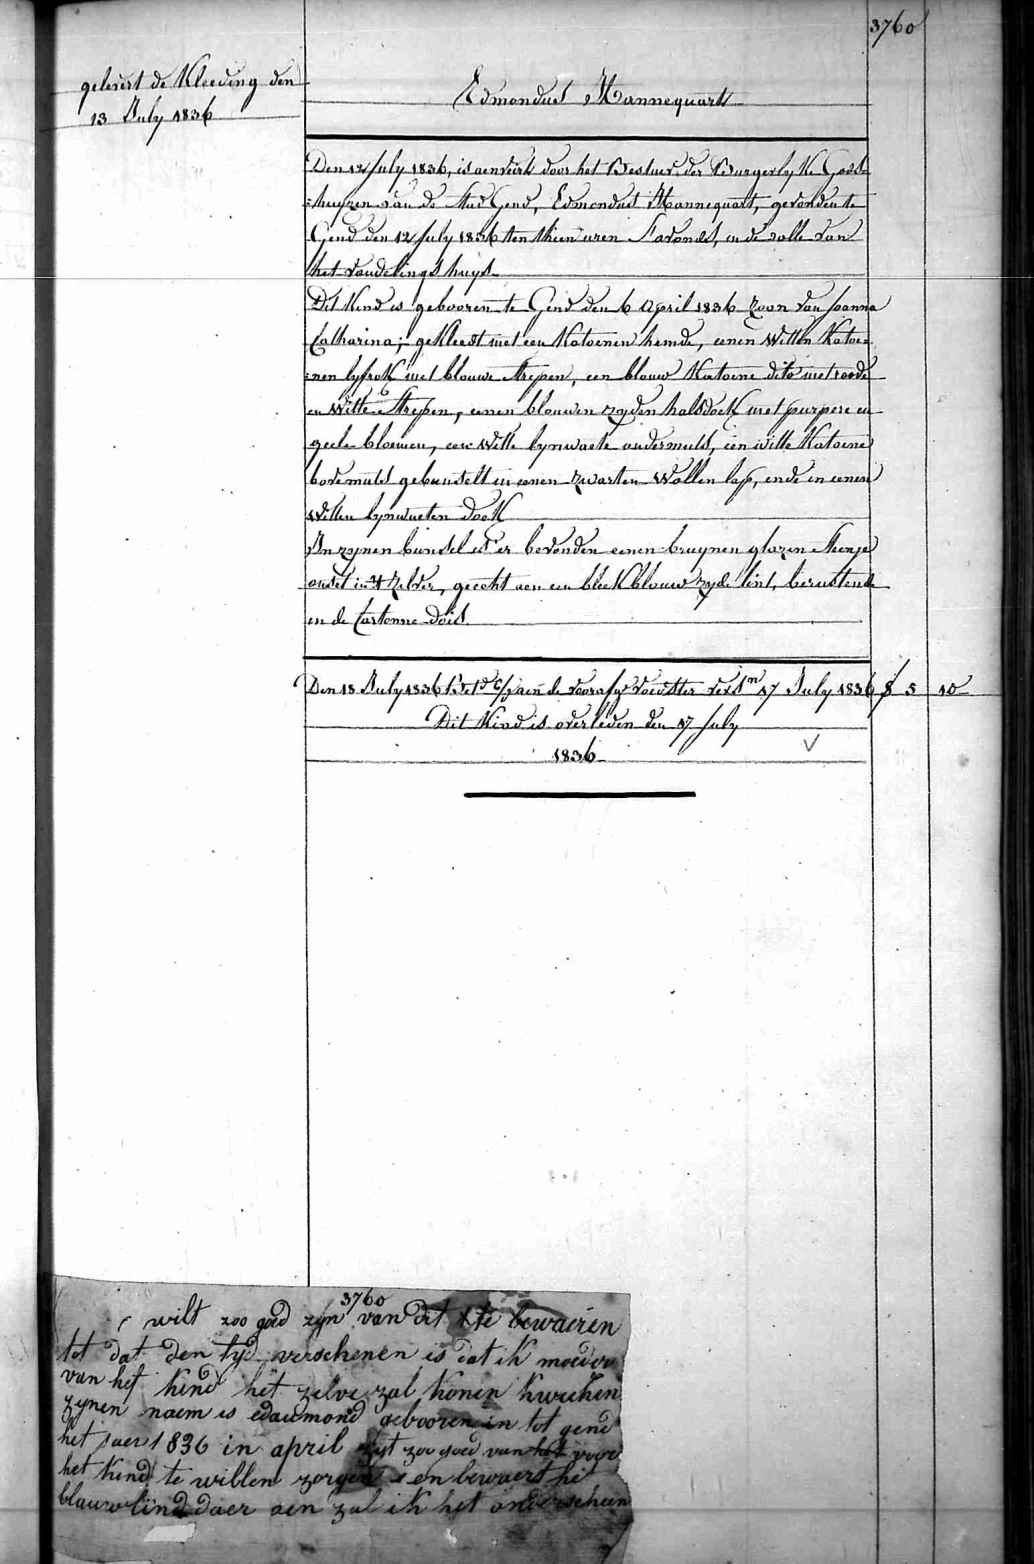 3760
gelevert de Kleeding den
13 July 1836
Edmondus Mannequart
Den 12 July 1836, is aenveirt door het Bestuer der Burgerlyke Gods-
=huyzen van de Stad Gend, Edmondus Mannequart, gevonden te
Gend den 12 July 1836 ten thien uren s'avonds, in de rolle van
het vondelingshuys.
Dit Kind is gebooren te Gend den 6 April 1836 zoon van Joanna
Catharina; gekleedt met een Katoenen hemde, eenen Witten Katoe=
=nen lyfrok met blauwe strepen, een blauw Katoene dito met roode
en Witte strepen, eenen blauwen zyden halsdoek met purpere en
geele bloemen, een Witte lynwaete ondermuts, een witte Katoene
bovemuts gebunselt in eenen zwarten Wollen lap, ende in eenen
Witten lynwaeten doek
In zynen bunsel is er bevonden eenen bruynen glazen steenje
omset in 't zilver, geecht aen een bleek blauw zyde lint, berustende
in de Cartonne doos.
Den 18 July 1836 aen de voorsz voedster verst 17 July 1836 5 10
Dit Kind is overleden den 17 July
1836
3760
wilt zoo goed zyn van dit te bewaeren
tot dat den tyd verschenen is dat ik moeder
van het kind het zelve zal konen kweeken
zynen naem is edaumond gebooren in tot gend
het jaer 1836 in april zyt zoo goed van het voor
het kind te willen zorgen en bewaert het
blauw lind daer aen zal ik het onderscheen